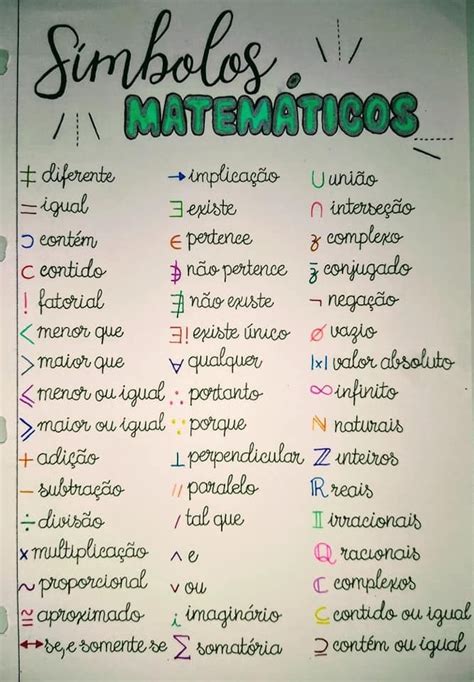 Símbolos
MATEMÁTICOS
≠ diferente
= igual
⊃ contém
⊂ contido
! fatorial
< menor que
> maior que
⩽ menor ou igual
⩾ maior ou igual
+ adição
− subtração
÷ divisão
x multiplicação
~ proporcional
≅ aproximado
↔ se, e somente se
→ implicação
∃ existe
∈ pertence
∉ não pertence
∄ não existe
∃! existe único
∀ qualquer
∴ portanto
∵ porque
⊥ perpendicular
// paralelo
/ tal que
∧ e
∨ ou
i imaginário
∑ somatória
∪ união
∩ interseção
z complexo
z̄ conjugado
¬ negação
∅ vazio
|x| valor absoluto
∞ infinito
ℕ naturais
ℤ inteiros
ℝ reais
𝕀 irracionais
ℚ racionais
ℂ complexos
⊆ contido ou igual
⊇ contém ou igual